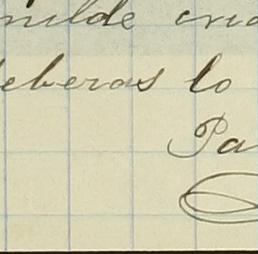 milde cria
eberas lo
Pa